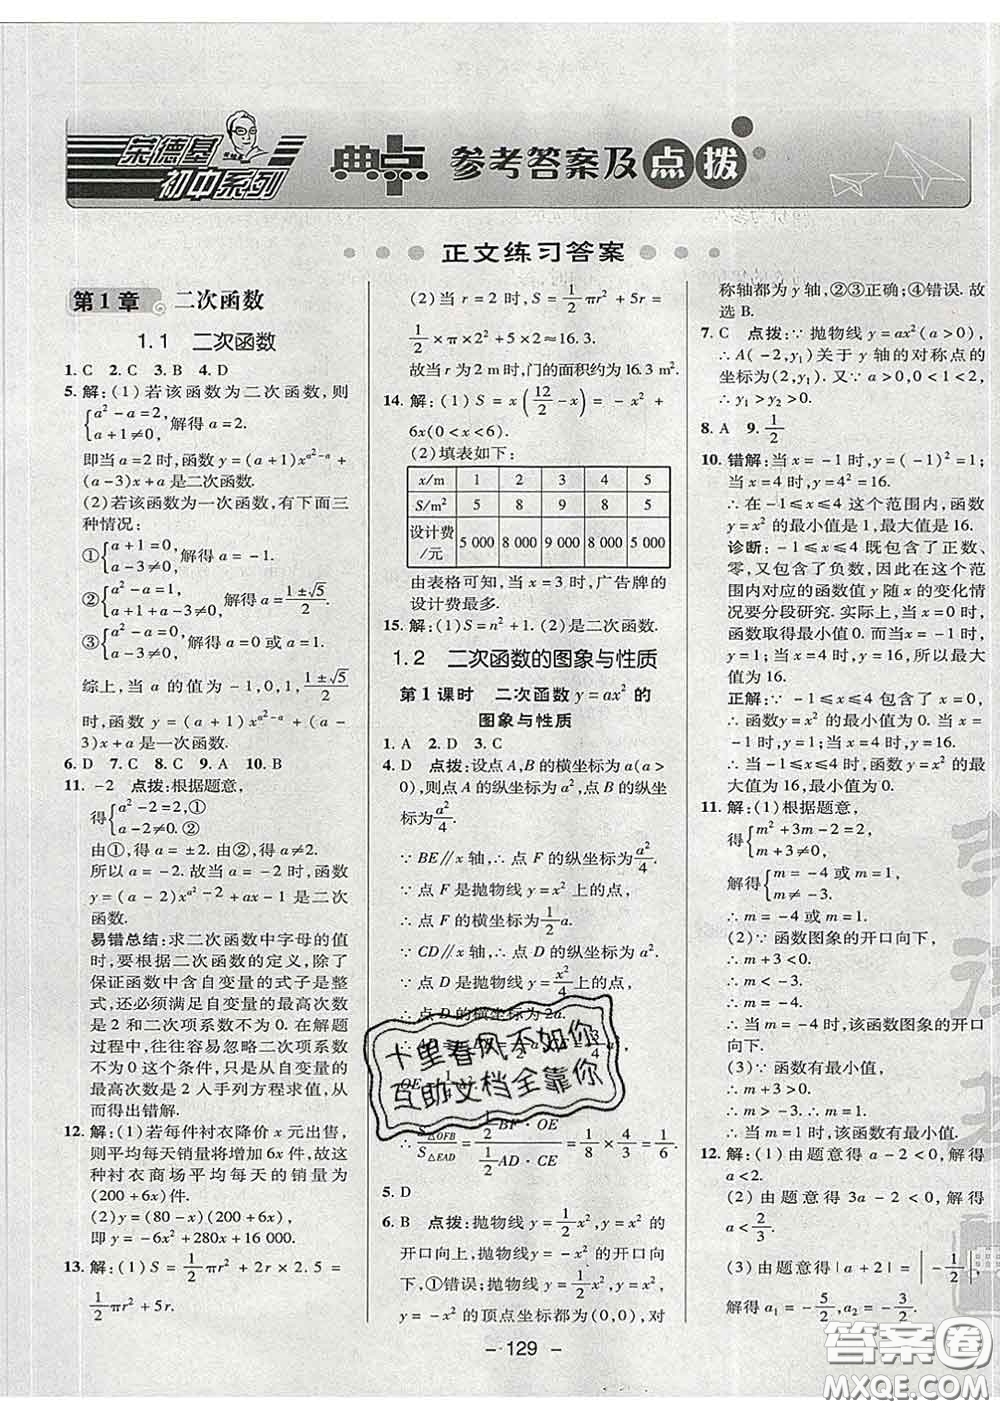 荣德基
初中系列
典点 参考答案及点拨
正文练习答案
第1章 二次函数
1.1 二次函数
1. C 2. C 3. B 4. D
5. 解:(1)若该函数为二次函数,则
{a²-a=2, a+1≠0, 解得 a=2.
即当 a=2 时,函数 y=(a+1)x^(a²-a)+
(a-3)x+a 是二次函数.
(2)若该函数为一次函数,有下面三
种情况:
①{a+1=0, a-3≠0, 解得 a=-1.
②{a²-a=1, a+1+a-3≠0, 解得 a=(1±√5)/2.
③{a²-a=0, a-3≠0, 解得 a=0 或 a=1.
综上,当 a 的值为 -1,0,1,(1±√5)/2
时,函数 y=(a+1)x^(a²-a)+(a-
3)x+a 是一次函数.
6. D 7. C 8. C 9. A 10. B
11. -2 点拨:根据题意,
得{a²-2=2,① a-2≠0.②
由①,得 a=±2. 由②,得 a≠2.
所以 a=-2. 故当 a=-2 时,函数
y=(a-2)x^(a²-2)+ax-1 是二次
函数.
易错总结:求二次函数中字母的值
时,要根据二次函数的定义,除了
保证函数中含自变量的式子是整
式,还必须满足自变量的最高次数
是 2 和二次项系数不为 0. 在解题
过程中,往往容易忽略二次项系数
不为 0 这个条件,只是从自变量的
最高次数是 2 入手列方程求值,从
而得出错解.
12. 解:(1)若每件衬衣降价 x 元出售,
则平均每天销量将增加 6x 件,故这
种衬衣商场平均每天的销量为
(200+6x)件.
(2)y=(80-x)(200+6x),
即 y=-6x²+280x+16 000.
13. 解:(1)S=1/2πr²+2r×2.5=
1/2πr²+5r.
(2)当 r=2 时,S=1/2πr²+5r=
1/2×π×2²+5×2≈16.3.
故当 r 为 2 m 时,门的面积约为 16.3 m².
14. 解:(1)S=x(12/2-x)=-x²+
6x(0<x<6).
(2)填表如下:
x/m 1 2 3 4 5
S/m² 5 8 9 8 5
设计费/元 5 000 8 000 9 000 8 000 5 000
由表格可知,当 x=3 时,广告牌的
设计费最多.
15. 解:(1)S=n²+1. (2)是二次函数.
1.2 二次函数的图象与性质
第1课时 二次函数 y=ax² 的
图象与性质
1. A 2. D 3. C
4. D 点拨:设点 A,B 的横坐标为 a(a>
0),则点 A 的纵坐标为 a²,点 B 的纵坐
标为 a²/4.
∵BE∥x 轴,∴点 F 的纵坐标为 a²/4.
∵点 F 是抛物线 y=x² 上的点,
∴点 F 的横坐标为 1/2a.
∵CD∥x 轴,∴点 D 的纵坐标为 a².
∵点 D 是抛物线 y=x²/4 上的点,
∴点 D 的横坐标为 2a.
十里春风不如你
互助文档全靠你
∴S△OFB/S△EAD=(1/2BF·OE)/(1/2AD·CE)=1/8×4/3=1/6.
5. D
6. B 点拨:抛物线 y=1/2x²,y=x² 的
开口向上,抛物线 y=-x² 的开口向
下,①错误;抛物线 y=1/2x²,y=x²,
y=-x² 的顶点坐标都为(0,0),对
称轴都为 y 轴,②③正确;④错误. 故
选 B.
7. C 点拨:∵抛物线 y=ax²(a>0),
∴A(-2,y₁)关于 y 轴的对称点的
坐标为(2,y₁). 又∵a>0,0<1<2,
∴y₁>y₂>0.
8. A 9. 1/2
10. 错解:当 x=-1 时,y=(-1)²=1;
当 x=4 时,y=4²=16.
∴在 -1≤x≤4 这个范围内,函数
y=x² 的最小值是 1,最大值是 16.
诊断:-1≤x≤4 既包含了正数、
零,又包含了负数,因此在这个范
围内对应的函数值 y 随 x 的变化情
况要分段研究. 实际上,当 x=0 时,
函数取得最小值 0. 而当 x=-1 时,
y=1;当 x=4 时,y=16,所以最大值
为 16.
正解:∵-1≤x≤4 包含了 x=0,
∴函数 y=x² 的最小值为 0. 当 x=
-1 时,y=1;当 x=4 时,y=16.
∴当 -1≤x≤4 时,函数 y=x² 的最
大值为 16,最小值为 0.
11. 解:(1)根据题意,
得{m²+3m-2=2, m+3≠0,
解得{m=-4或m=1, m≠-3.
∴m=-4 或 m=1.
(2)∵函数图象的开口向下,
∴m+3<0.
∴m<-3.
∴m=-4.
∴当 m=-4 时,该函数图象的开口
向下.
(3)∵函数有最小值,
∴m+3>0.
∴m>-3.
∴m=1.
∴当 m=1 时,该函数有最小值.
12. 解:(1)由题意得 a-2<0,解得
a<2.
(2)由题意得 3a-2<0,解得
a<2/3.
(3)由题意得|a+2|=|-1/2|,
解得 a₁=-5/2,a₂=-3/2.
典
- 129 -
答案圈
MXQE.COM